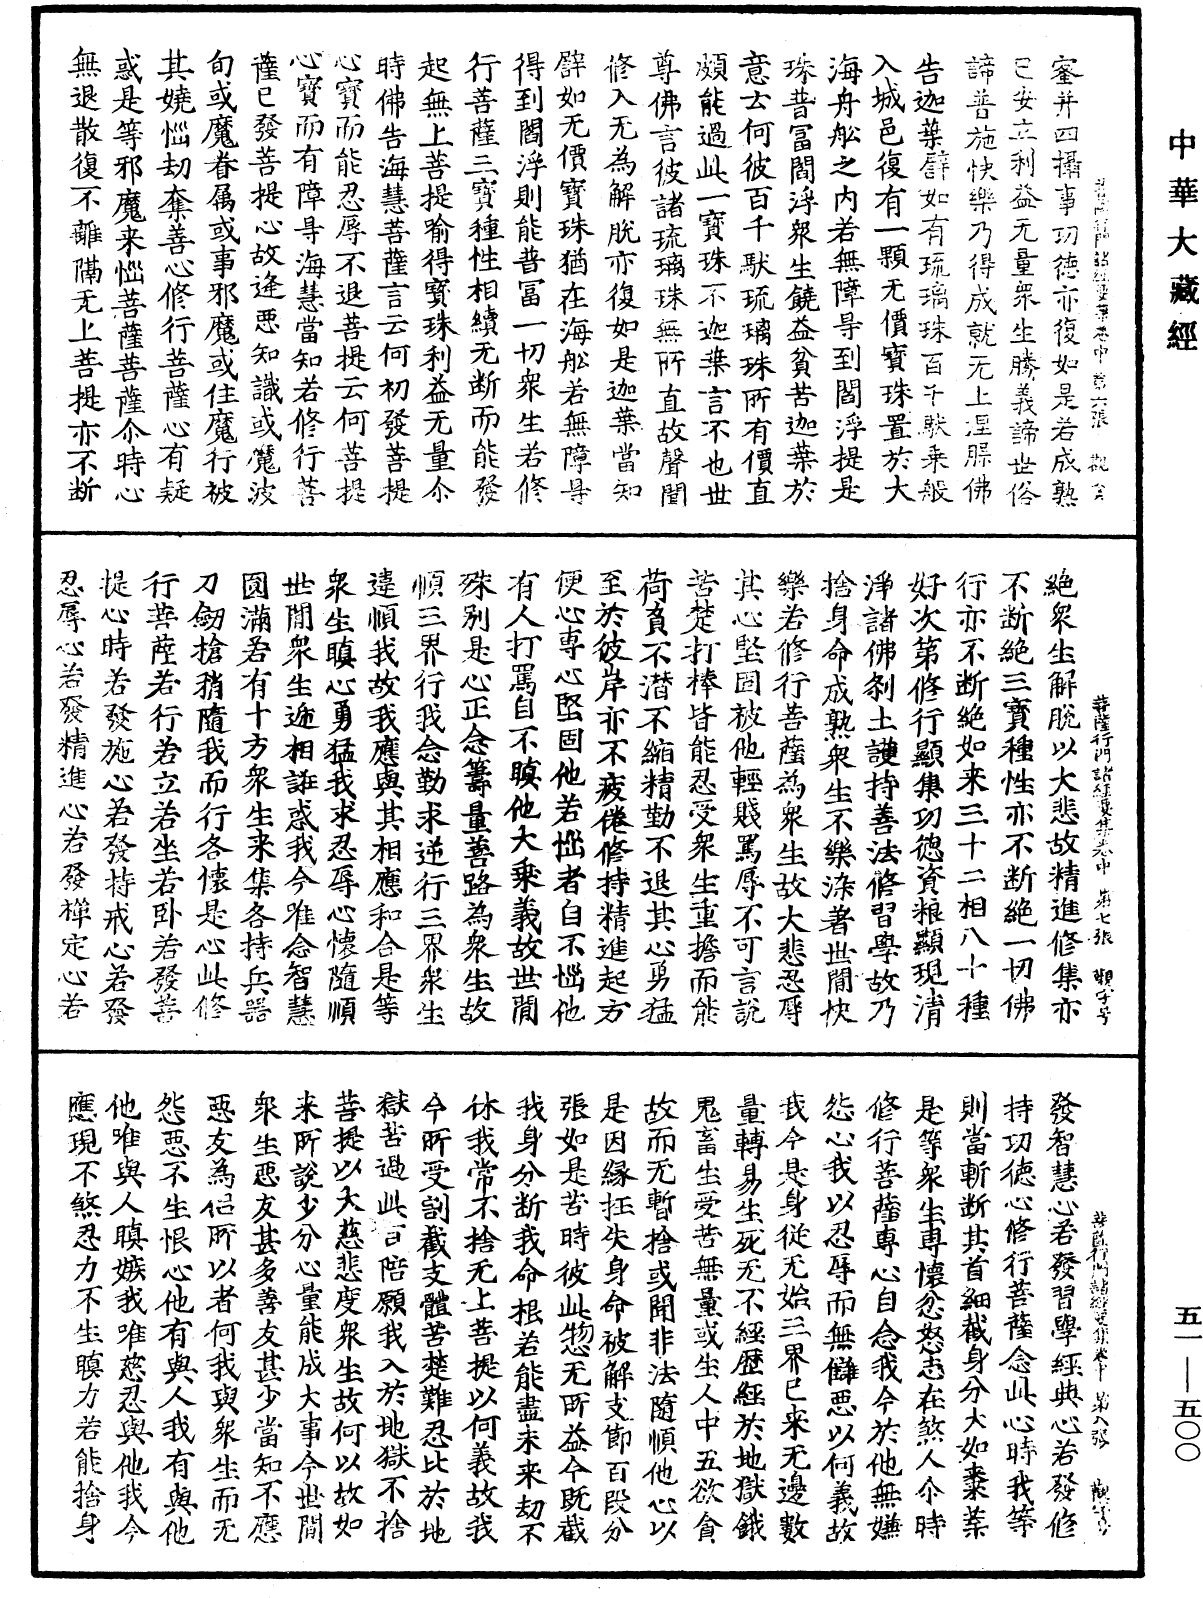 中華大藏經
蜜并四攝事功德亦復如是若成熟
已安立利益无量衆生勝義諦世俗
諦善施快樂乃得成就无上涅槃佛
告迦葉譬如有琉璃珠百千馱乘般
入城邑復有一顆无價寶珠置於大
海舟舩之内若無障㝵到閻浮提是
珠普富閻浮衆生饒益貧苦迦葉於
意云何彼百千馱琉璃珠所有價直
頗能過此一寶珠不迦葉言不也世
尊佛言彼諸琉璃珠無所直故聲聞
修入无為解脫亦復如是迦葉當知
譬如无價寶珠猶在海舩若無障㝵
得到閻浮則能普冨一切衆生若修
行菩薩三寶種性相續无断而能發
起無上菩提喻得寶珠利益无量尒
時佛告海慧菩薩言云何初發菩提
心寶而能忍辱不退菩提云何菩提
心寶而有障㝵海慧當知若修行菩
薩已發菩提心故逢惡知識或魔波
旬或魔眷属或事邪魔或住魔行被
其嬈惱劫奪善心修行菩薩心有疑
惑是等邪魔来惱菩薩菩薩尒時心
無退散復不離隔无上菩提亦不断
菩薩行門諸經要集卷中 第七張
絶衆生解脫以大悲故精進修集亦
不断絶三寶種性亦不断絶一切佛
行亦不断絶如来三十二相八十種
好次第修行顯集功德資粮顯現清
淨諸佛刹土護持善法修習學故乃
捨身命成熟衆生不樂染著世間快
樂若修行菩薩為衆生故大悲忍辱
其心堅固被他輕賤罵辱不可言說
苦楚打棒皆能忍受衆生重擔而能
荷負不潜不縮精勤不退其心勇猛
至於彼岸亦不疲倦修持精進起方
便心專心堅固他若惱者自不惱他
有人打罵自不瞋他大乘義故世間
殊别是心正念籌量善路為衆生故
順三界行我念勤求逆行三界衆生
違順我故我應與其相應和合是等
衆生瞋心勇猛我求忍辱心懷隨順
世間衆生遞相誑惑我今唯念智慧
圓滿若有十方衆生来集各持兵器
刀劒槍矟隨我而行各懷是心此修
行菩薩若行若立若坐若卧若發菩
提心時若發施心若發持戒心若發
忍辱心若發精進心若發禅定心若
發智慧心若發習學經典心若發修
持功德心修行菩薩念此心時我等
則當斬断其首細截身分大如棗葉
是等衆生専懷忿怒志在煞人尒時
修行菩薩專心自念我今於他無嫌
怨心我以忍辱而無讎惡以何義故
我今是身從无始三界已来无邊數
量轉易生死无不經歷經於地獄餓
鬼畜生受苦無量或生人中五欲貪
故而无暫捨或聞非法隨順他心以
是因緣抂失身命被解支節百段分
張如是苦時彼此惣无所益今既截
我身分断我命根若能盡未来劫不
休我常不捨无上菩提以何義故我
今所受割截支體苦楚難忍比於地
獄苦過此百倍願我入於地獄不捨
菩提以大慈悲度衆生故何以故如
来所說少分心量能成大事今世間
衆生惡友甚多善友甚少當知不應
惡友為侣所以者何我與衆生而无
怨惡不生恨心他有與人我有與他
他唯與人瞋嫉我唯慈忍與他我今
應現不煞忍力不生瞋力若能捨身
五一—五〇〇